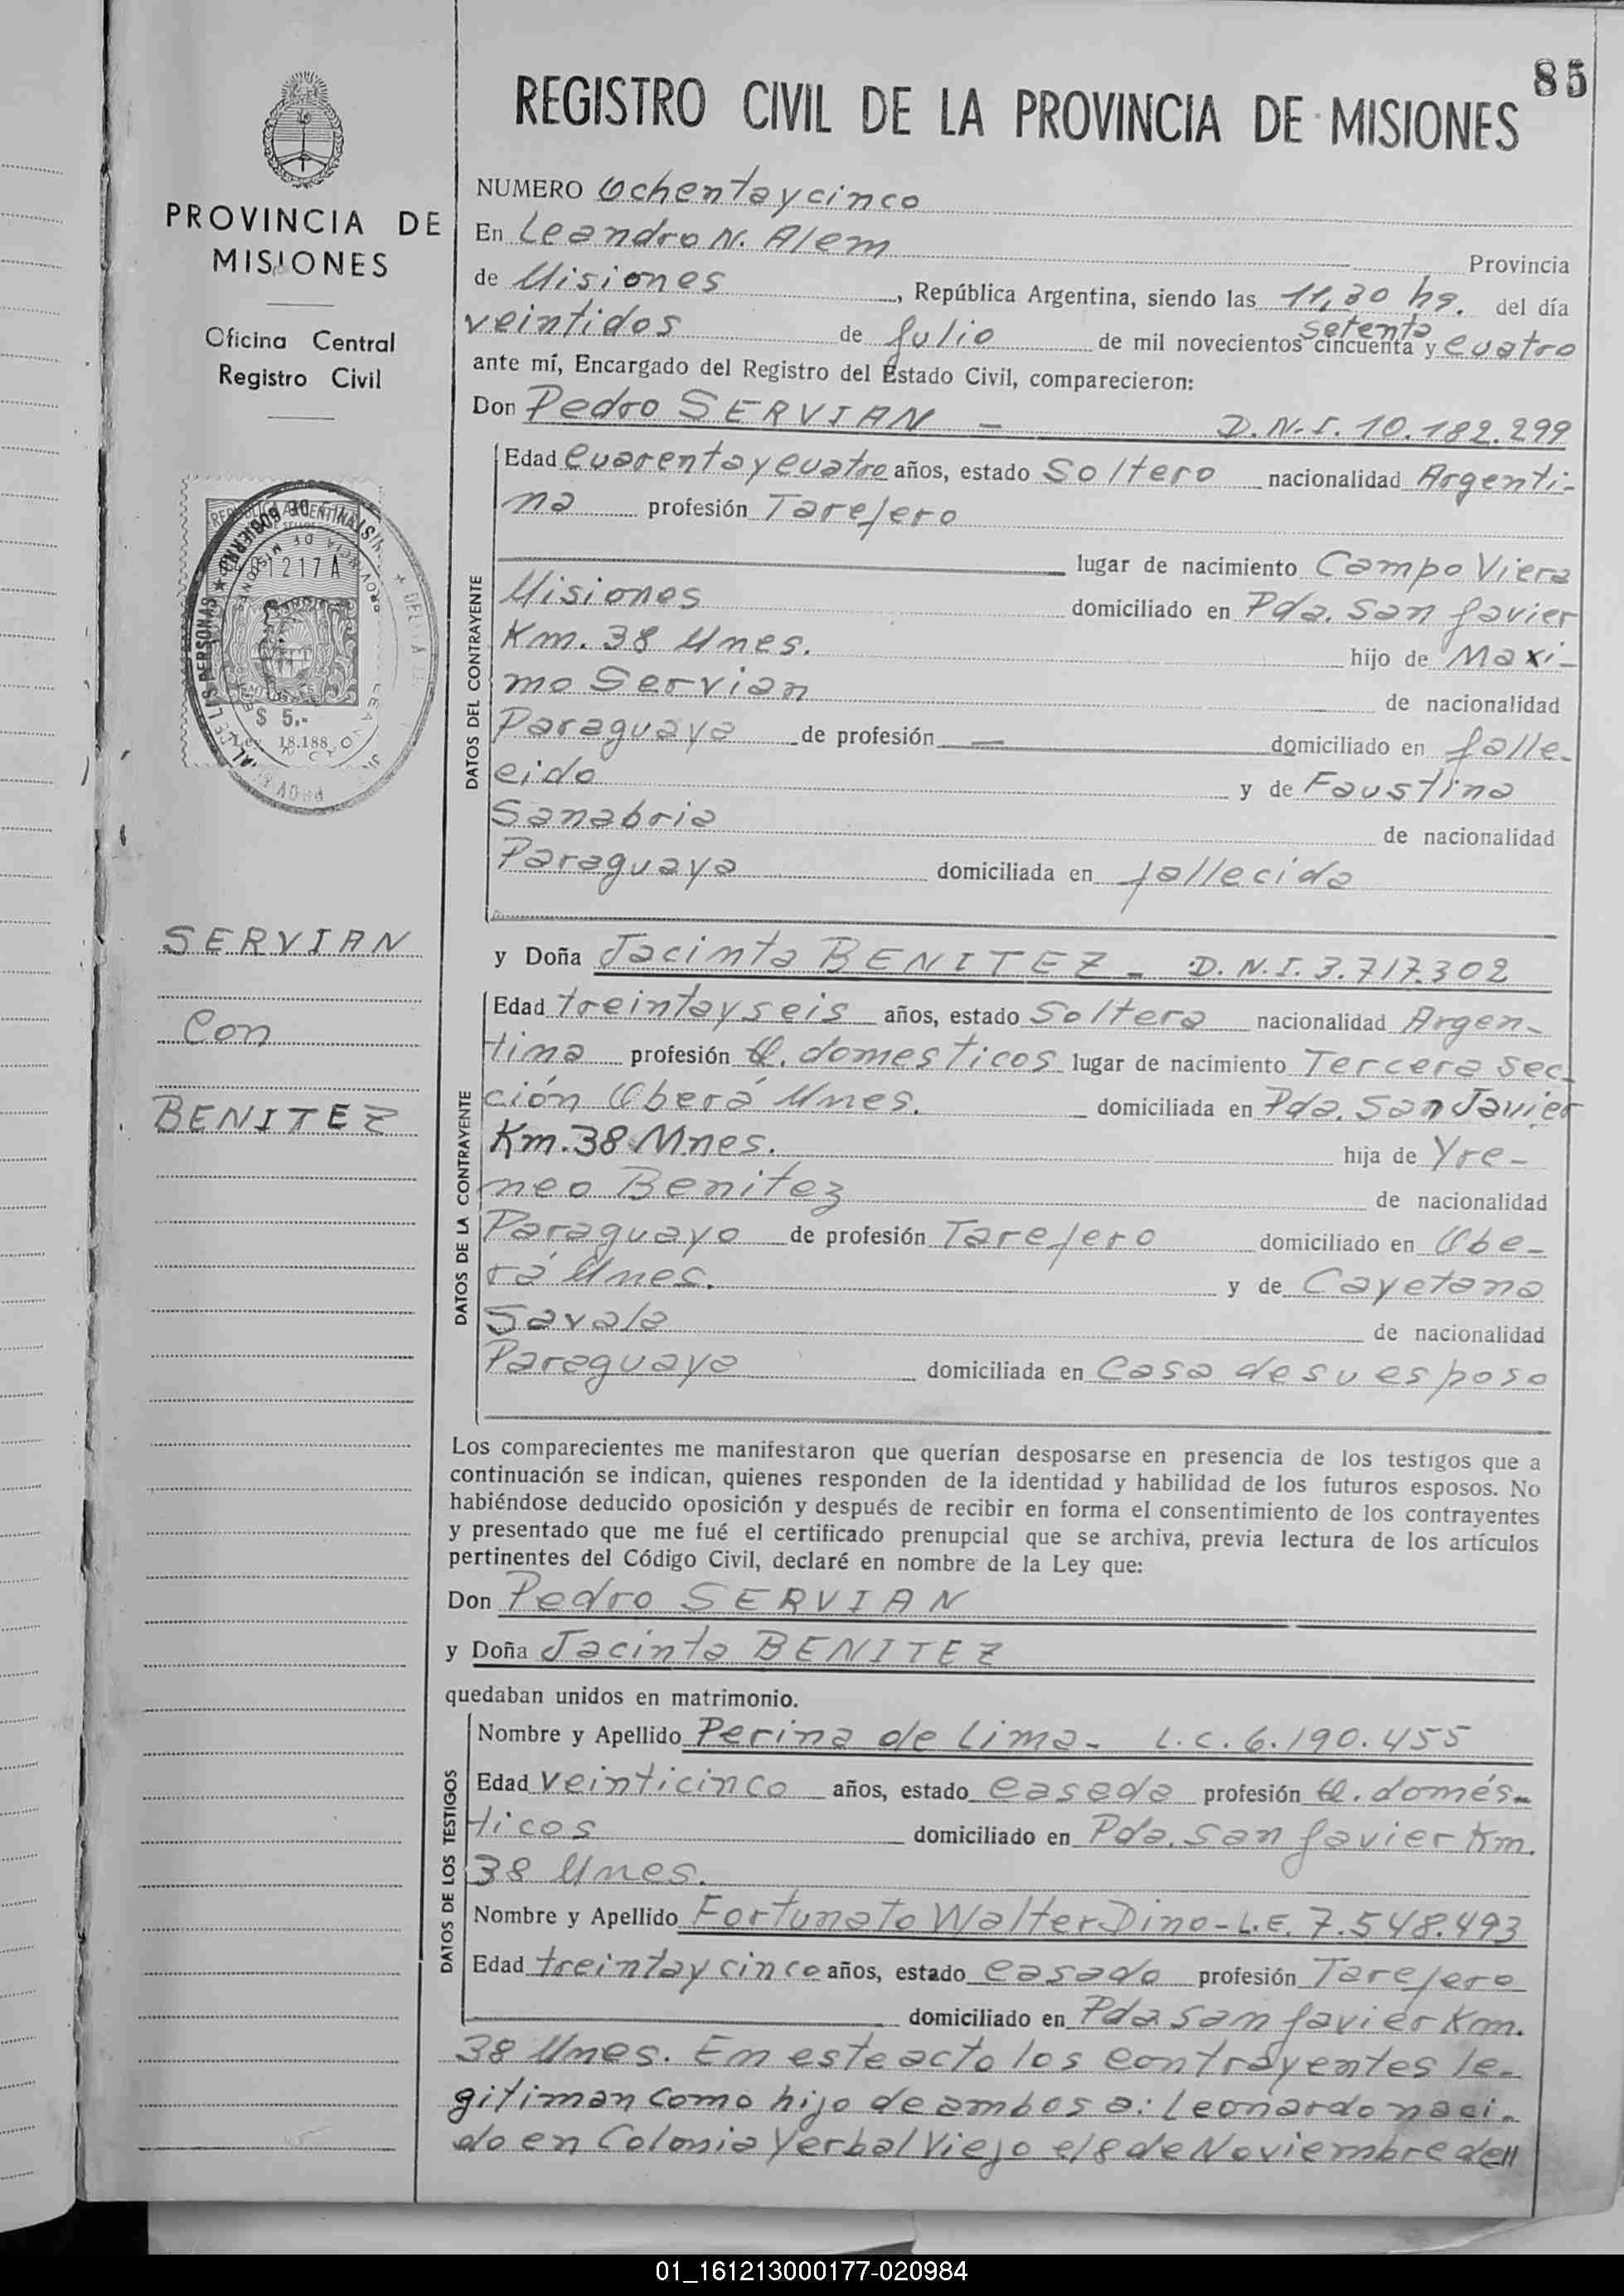 85
REGISTRO CIVIL DE LA PROVINCIA DE MISIONES
PROVINCIA DE
MISIONES
Oficina Central
Registro Civil
$ 5.-
18.188
SERVIAN
Con
BENITEZ
NUMERO Ochenta y cinco
En Leandro N. Alem Provincia
de Misiones, República Argentina, siendo las 11,30 hs. del día
setenta
veintidos de Julio de mil novecientos cincuenta y cuatro
ante mí, Encargado del Registro del Estado Civil, comparecieron:
Don Pedro SERVIAN - D.N.I. 10.182.299
DATOS DEL CONTRAYENTE
Edad cuarenta y cuatro años, estado Soltero nacionalidad Argenti-
na profesión Tarefero
lugar de nacimiento Campo Viera
Misiones domiciliado en Pda. San Javier
Km. 38 Mnes. hijo de Maxi-
mo Servian de nacionalidad
Paraguaya de profesión — domiciliado en falle-
cido y de Faustina
Sanabria de nacionalidad
Paraguaya domiciliada en fallecida
y Doña Jacinta BENITEZ - D.N.I. 3.717.302
DATOS DE LA CONTRAYENTE
Edad treinta y seis años, estado Soltera nacionalidad Argen-
tina profesión Q. domesticos lugar de nacimiento Tercera Sec-
ción Oberá Mnes. domiciliada en Pda. San Javier
Km. 38 Mnes. hija de Yre-
neo Benitez de nacionalidad
Paraguayo de profesión Tarefero domiciliado en Obe-
rá Mnes. y de Cayetana
Savala de nacionalidad
Paraguaya domiciliada en Casa de su esposo
Los comparecientes me manifestaron que querían desposarse en presencia de los testigos que a
continuación se indican, quienes responden de la identidad y habilidad de los futuros esposos. No
habiéndose deducido oposición y después de recibir en forma el consentimiento de los contrayentes
y presentado que me fué el certificado prenupcial que se archiva, previa lectura de los artículos
pertinentes del Código Civil, declaré en nombre de la Ley que:
Don Pedro SERVIAN
y Doña Jacinta BENITEZ
quedaban unidos en matrimonio.
DATOS DE LOS TESTIGOS
Nombre y Apellido Perina de Lima - L.C. 6.190.455
Edad veinticinco años, estado casada profesión Q. domés-
ticos domiciliado en Pda. San Javier Km.
38 Mnes.
Nombre y Apellido Fortunato Walter Dino - L.E. 7.548.493
Edad treinta y cinco años, estado casado profesión Tarefero
domiciliado en Pda San Javier Km.
38 Mnes. En este acto los contrayentes le-
gitiman como hijo de ambos a: Leonardo naci-
do en Colonia Yerbal Viejo el 8 de Noviembre de //
01_161213000177-020984